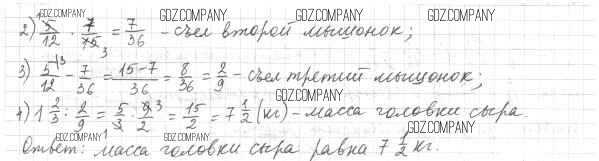 GDZ.COMPANY GDZ.COMPANY GDZ.COMPANY
2) 5/12 · 7/15 = 7/36 - съел второй мышонок;
3) 5/12 - 7/36 = (15-7)/36 = 8/36 = 2/9 - съел третий мышонок;
GDZ.COMPANY
4) 1 2/3 : 2/9 = 5/3 · 9/2 = 15/2 = 7 1/2 (кг) - масса головки сыра.
GDZ.COMPANY GDZ.COMPANY GDZ.COMPANY
Ответ: масса головки сыра равна 7 1/2 кг.